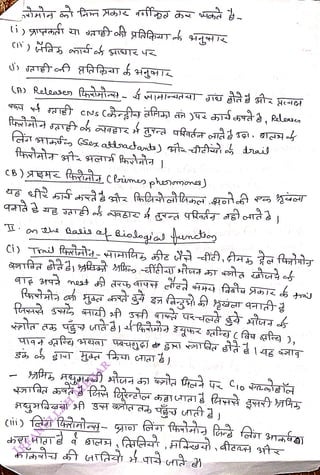 फिरोमोन को निम्न प्रकार वर्गीकृत कर सकते है-
(i) प्राप्तकर्ता या ग्राही की प्रतिक्रिया के अनुसार
(ii) जैविक कार्य के आधार पर
(i) ग्राही की प्रतिक्रिया के अनुसार
(A) Releaser फिरोमोन्स- ये सामान्यतया गंध होते है और प्रत्यक्ष
रूप से ग्राही CNS (केन्द्रीय तंत्रिका तंत्र) पर कार्य करते है, Releaser
फिरोमोन ग्राही के व्यवहार में तुरन्त परिवर्तन लाते है उदा. बालक के
लिंग आकर्षक (Sex attractants) और चीटीयो के trail
फिरोमोन और अलार्म फिरोमोन।
(B) प्राइमर फिरोमोन (Primer pheromones)
यह धीरे कार्य करते है और फिजियोलोजिकल घटनो की एक श्रृंखला
बनाते है यह ग्राही के व्यवहार में तुरन्त परिवर्तन नही लाते है।
II. on the Basis of Biological function
(i) Trail फिरोमोन- सामाजिक कीट जैसे चींटी, दीमक ट्रेल फिरोमोन
स्त्रावित होते है। श्रमिको श्रमिक चींटीया भोजन का स्त्रोत खोजने के
बाद अपने nest की तरफ वापस लौटते समय विशेष प्रकार के trail
फिरोमोन को मुक्त करते हुये इन बिन्दुओ की श्रृंखला बनाती है
जिससे उसके साथी भी उसी रास्ते पर चलते हुये भोजन के
स्त्रोत तक पहुँच जाते है। ये फिरोमोन ड्यूफर ग्रन्थि (विष ग्रन्थि),
पावन ग्रन्थि अथवा पश्चगुदा द्वारा स्त्रावित होते है। यह स्त्राव
डंक के द्वारा मुक्त किया जाता है।
- श्रमिक मधुमक्खी भोजन का स्त्रोत मिलने पर C10
स्त्रावित करते है जिसे कहा जाता है जिससे दूसरी श्रमिक
मधुमक्खियां भी उस स्त्रोत तक पहुँच जाती है।
(iii) लिंग फिरोमोन्स- प्राय लिंग फिरोमोन जिन्हे लिंग आकर्षक
कहा जाता है ये बालभ, तितलियो, मक्खियो, बीटल्स और
काकरोच की जातियो में पाये जाते है।